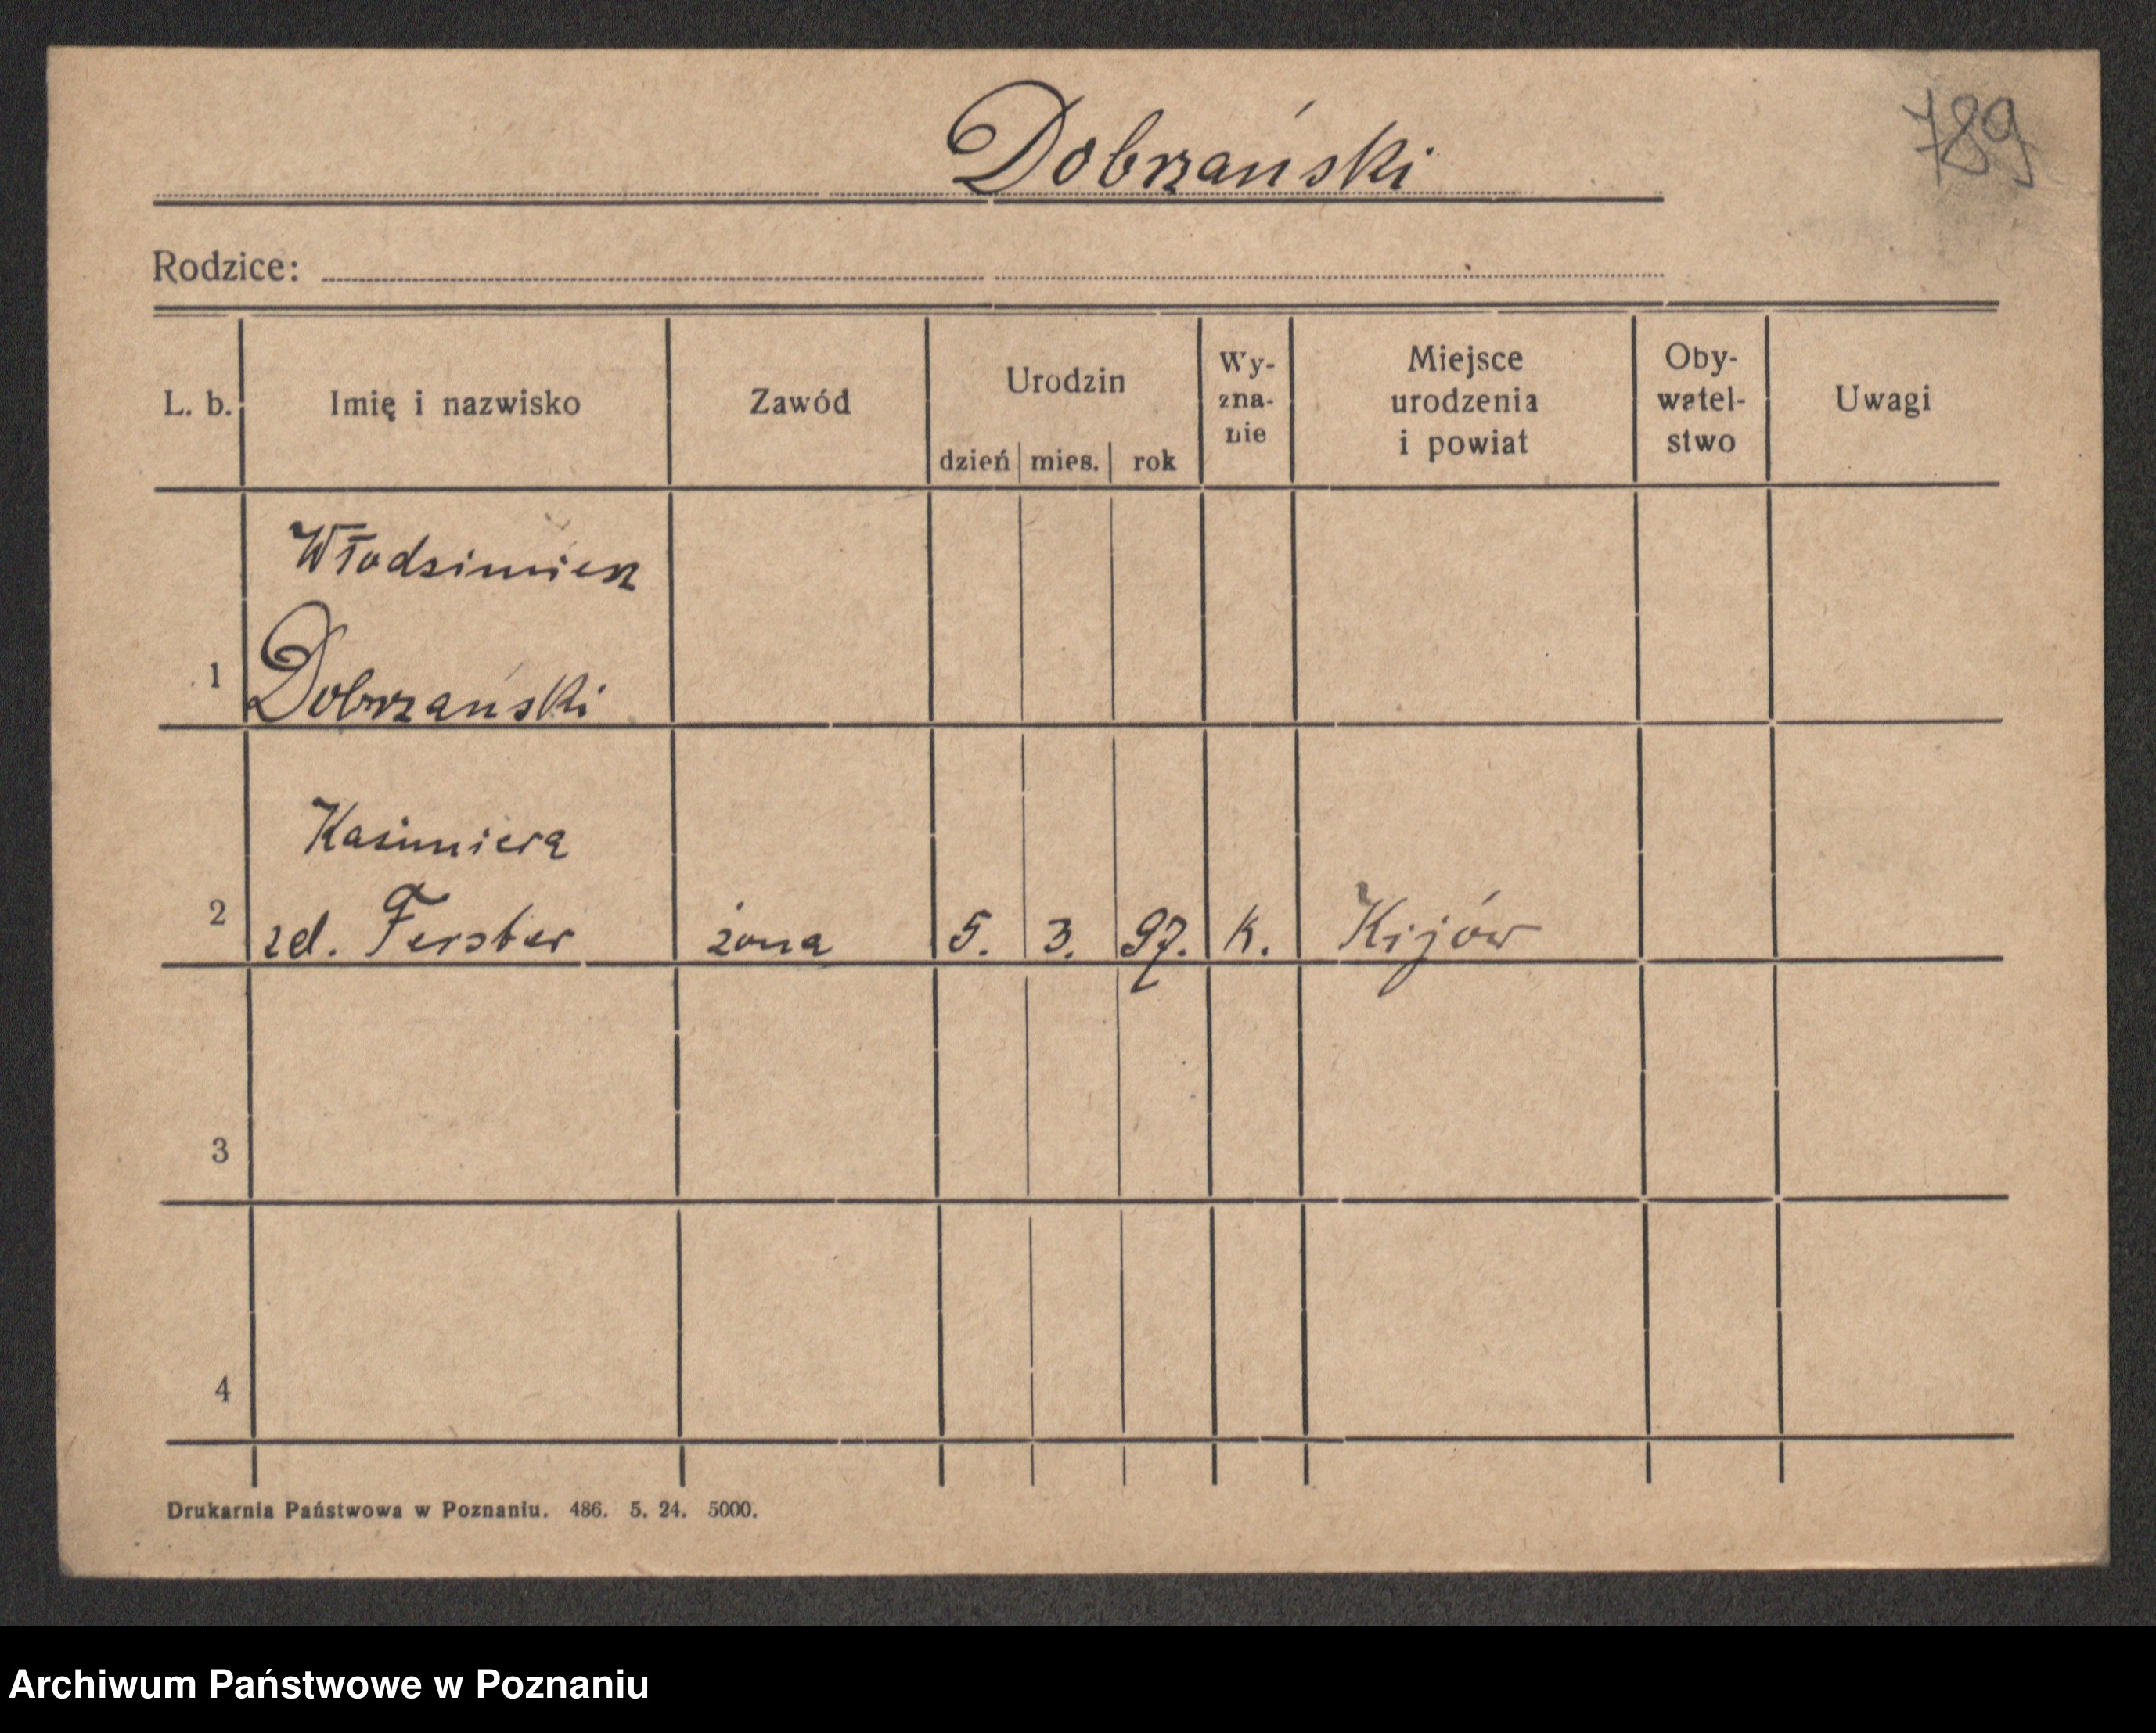 789
Dobrzański
Rodzice:
L. b. Imię i nazwisko Zawód Urodzin dzień mies. rok Wy-zna-nie Miejsce urodzenia i powiat Oby-watel-stwo Uwagi
Włodzimierz
1 Dobrzański
Kazimiera
2 zd. Ferster żona 5. 3. 97. k. Kijów
3
4
Drukarnia Państwowa w Poznaniu. 486. 5. 24. 5000.
Archiwum Państwowe w Poznaniu